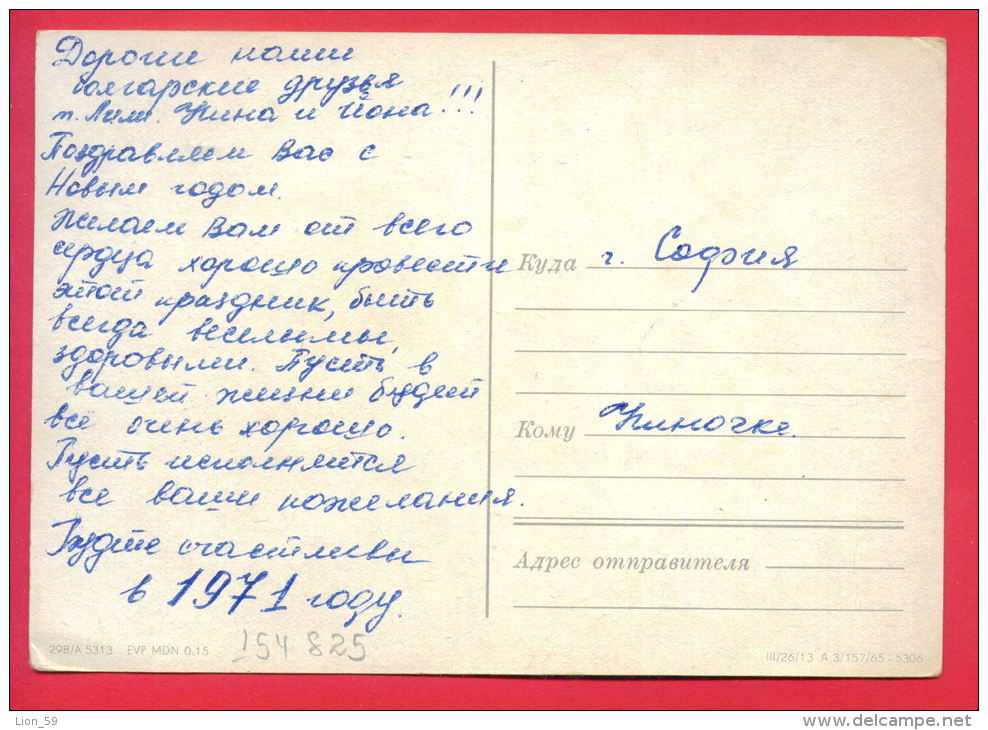 Дорогие наши
болгарские друзья
Нина и Йона!!!
Поздравляем Вас с
Новым годом.
Желаем Вам от всего
сердца хорошо провести
этот праздник, быть
всегда веселыми,
здоровыми. Пусть в
вашей жизни будет
все очень хорошо.
Пусть исполнятся
все ваши пожелания.
Будте счастливы
в 1971 году.
154825
298/A 5313 EVP MDN 0.15
Куда г. София
Кому Ниночке.
Адрес отправителя
III/26/13 A 3/157/65 - 5306
Lion_59
www.delcampe.net